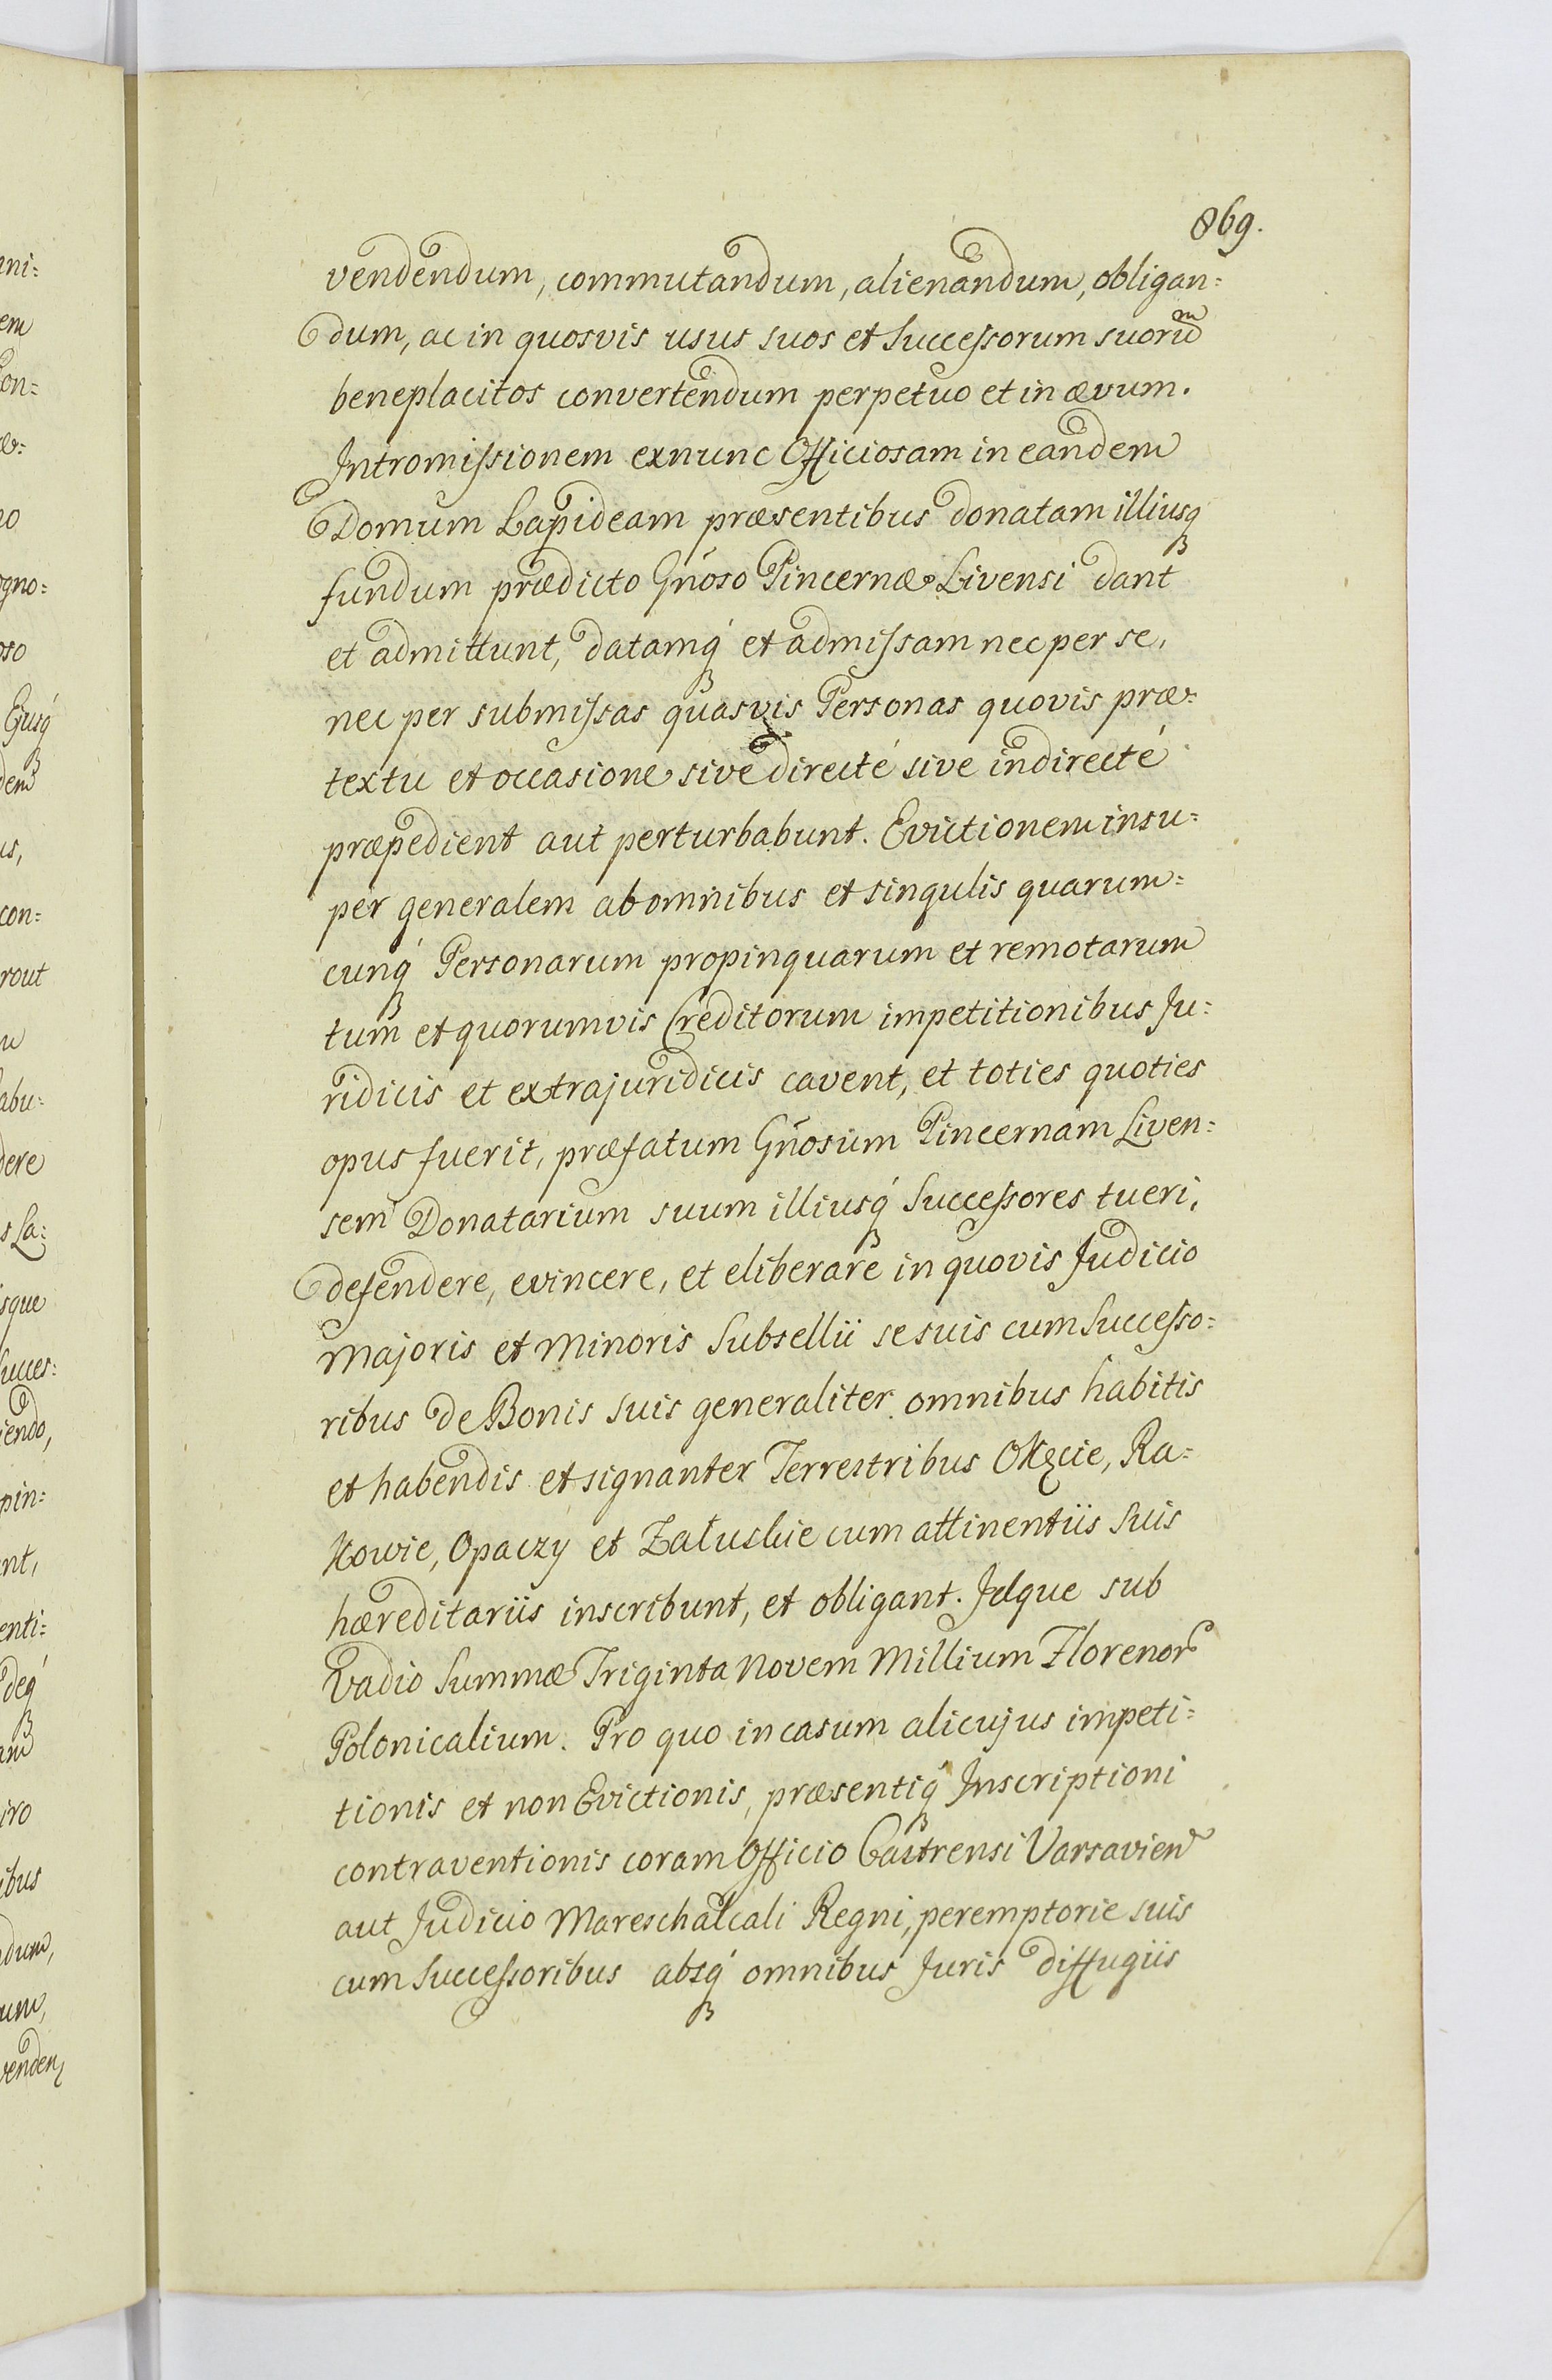 869.
vendendum, commutandum, alienandum, obligan=
dum, ac in quosvis usus suos et Succeſsorum suorũ
beneplacitos convertendum perpetuo et in ævum.
Intromiſsionem exnunc Officiosam in eandem
Domum Lapideam præsentibus donatam illiusq́
fundum prædicto Gñoso Pincernæ Livensi dant
et admittunt, datamq́ et admiſsam nec per se,
nec per submiſsas quasvis Personas quovis præ=
textu et occasione sive directé sive indirecté
præpedient aut perturbabunt. Evictionem insu=
per generalem ab omnibus et singulis quarum=
cunq́ Personarum propinquarum et remotarum
tum et quorumvis Creditorum impetitionibus Ju=
ridicis et extrajuridicis cavent, et toties quoties
opus fuerit, præfatum Gñosum Pincernam Liven=
sem Donatarium suum illiusq́ Succeſsores tueri,
defendere, evincere, et eliberare in quovis Judicio
Majoris et Minoris Subsellii se suis cum Succeſso=
ribus de Bonis suis generaliter omnibus habitis
et habendis et signanter Terrestribus Okęcie, Ra=
kowie, Opaczy et Załuskie cum attinentiis suis
hæreditariis inscribunt, et obligant. Idque sub
Vadio Summæ Triginta Novem Millium Florenor
Polonicalium. Pro quo in casum alicujus impeti=
tionis et non Evictionis, præsentiq́ Inscriptioni
contraventionis coram Officio Castrensi Varsavien
aut Judicio Mareschalcali Regni, peremptorie suis
cum Succeſsoribus absq́ omnibus Juris diffugiis
ani=
em
on=
æ=
no
gno=
oso
Ejusq́
dem
us,
con=
rout
abu=
dere
s La=
sque
Succes=
iendo,
pin=
ent,
enti=
deq́
am
iro
ibus
ndum,
um,
venden,